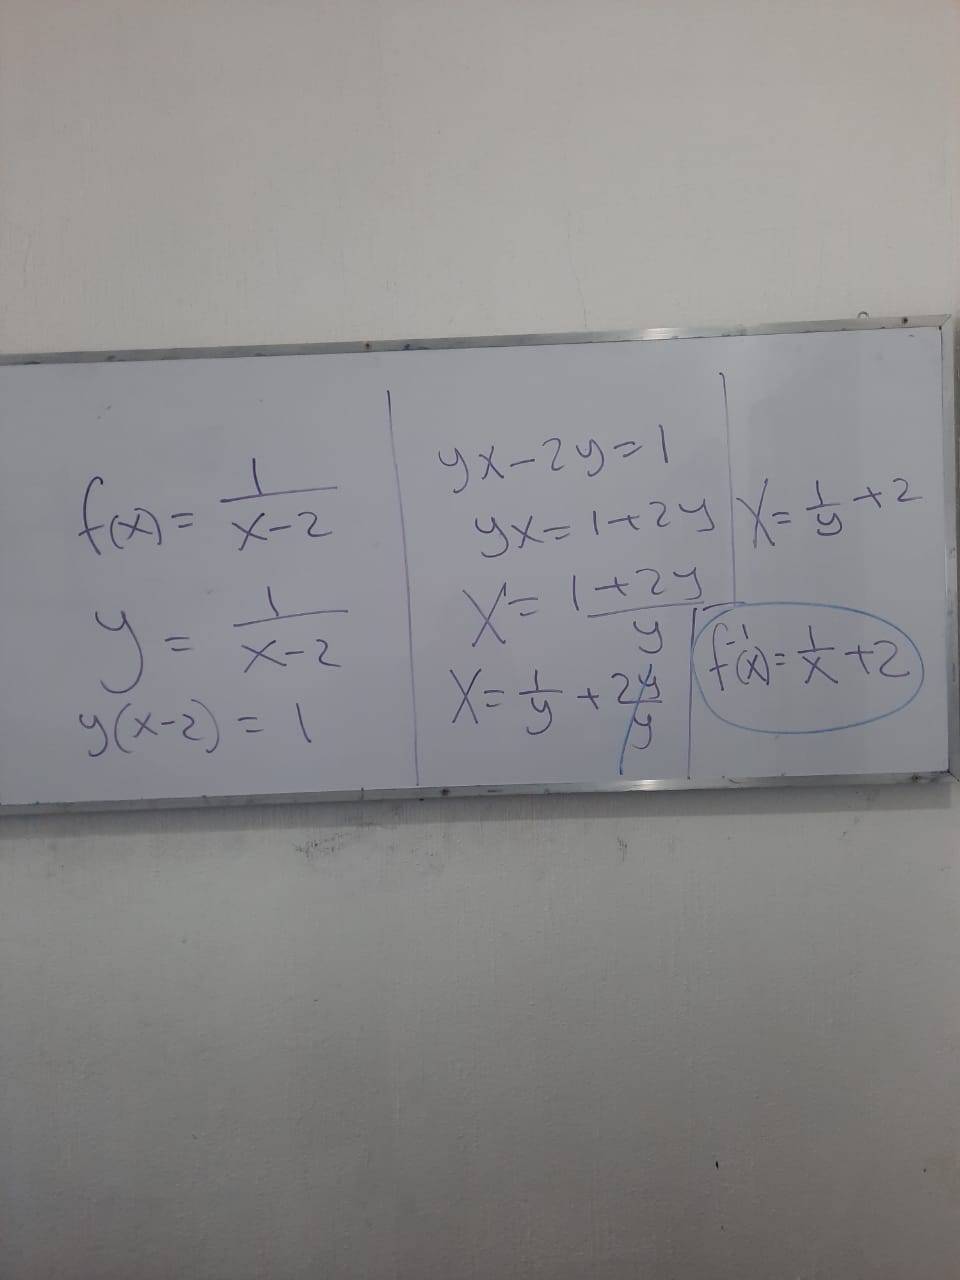 f(x) = 1/(x-2)
y = 1/(x-2)
y(x-2) = 1
yx-2y=1
yx=1+2y
X = (1+2y)/y
X = 1/y + 2y/y
X = 1/y + 2
f⁻¹(x) = 1/x + 2